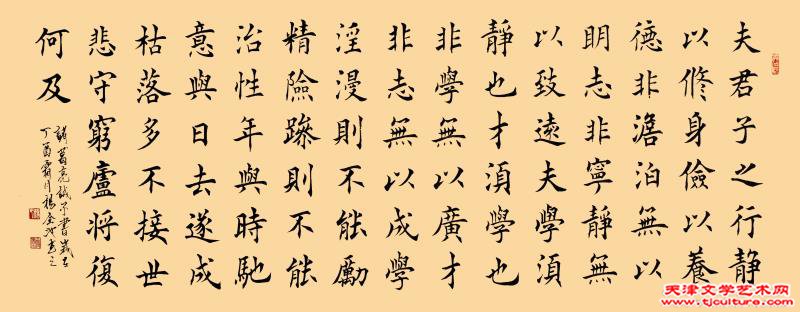 夫君子之行静
以脩身儉以養
德非澹泊無以
明志非寧静無
以致遠夫學須
静也才須學也
非學無以廣才
非志無以成學
淫漫則不能勵
精險躁則不能
治性年與時馳
意與日去遂成
枯落多不接世
悲守窮廬將復
何及
諸葛亮誡子書歲在
丁酉霜月楊金書之
天津文学艺术网
www.tjculture.com